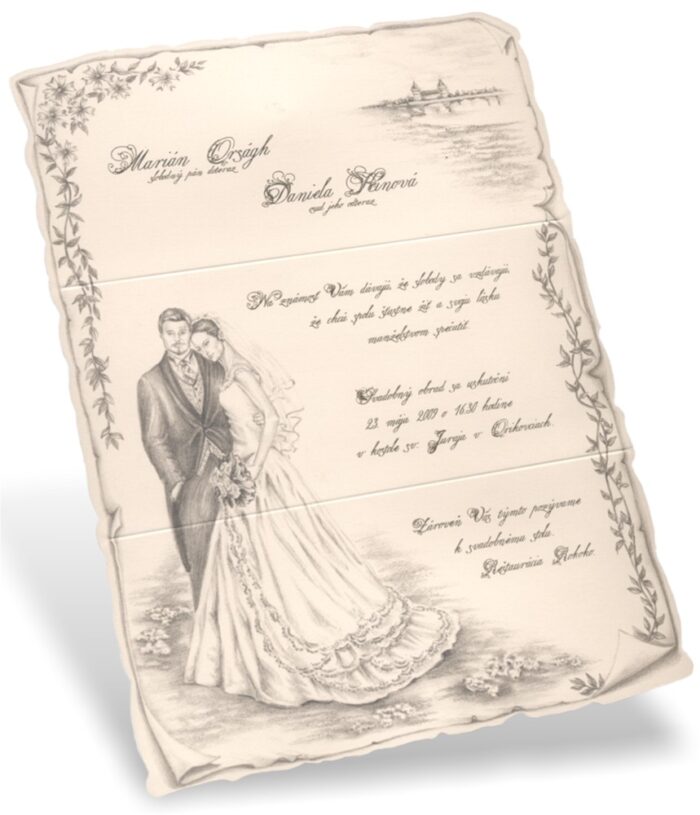 Marián Országh
slobodný pán doteraz
Daniela Heinová
nad jeho doteraz
Na známosť Vám dávajú, že slobody sa vzdávajú,
že chcú spolu šťastne žiť a svoju lásku
manželstvom spečatiť.
Svadobný obrad sa uskutoční
23. mája 2009 o 16.30 hodine
v kostole sv. Juraja v Orihovciach.
Zároveň Vás týmto pozývame
k svadobnému stolu.
Reštaurácia Rokoko.